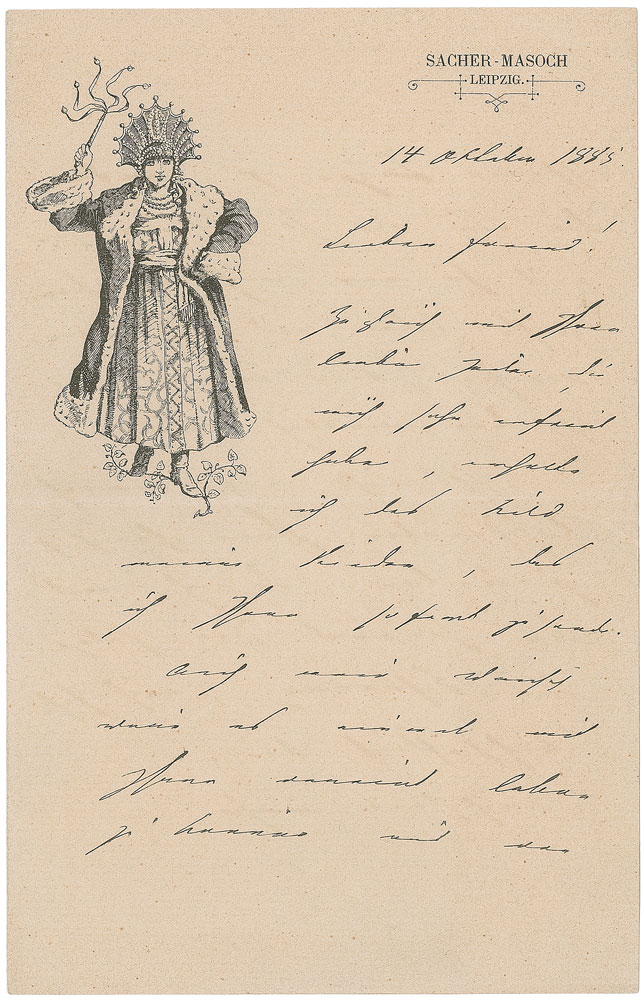 SACHER-MASOCH
LEIPZIG.
14 October 1885.
Lieber Freund!
Zugleich mit Ihren
lieben Zeilen, die
mich sehr erfreut
haben, erhielt
ich das Bild
meines Kindes, das
ich Ihnen sofort sende.
Auch mein Wunsch
wäre es einmal mit
Ihnen vereint leben
zu können und